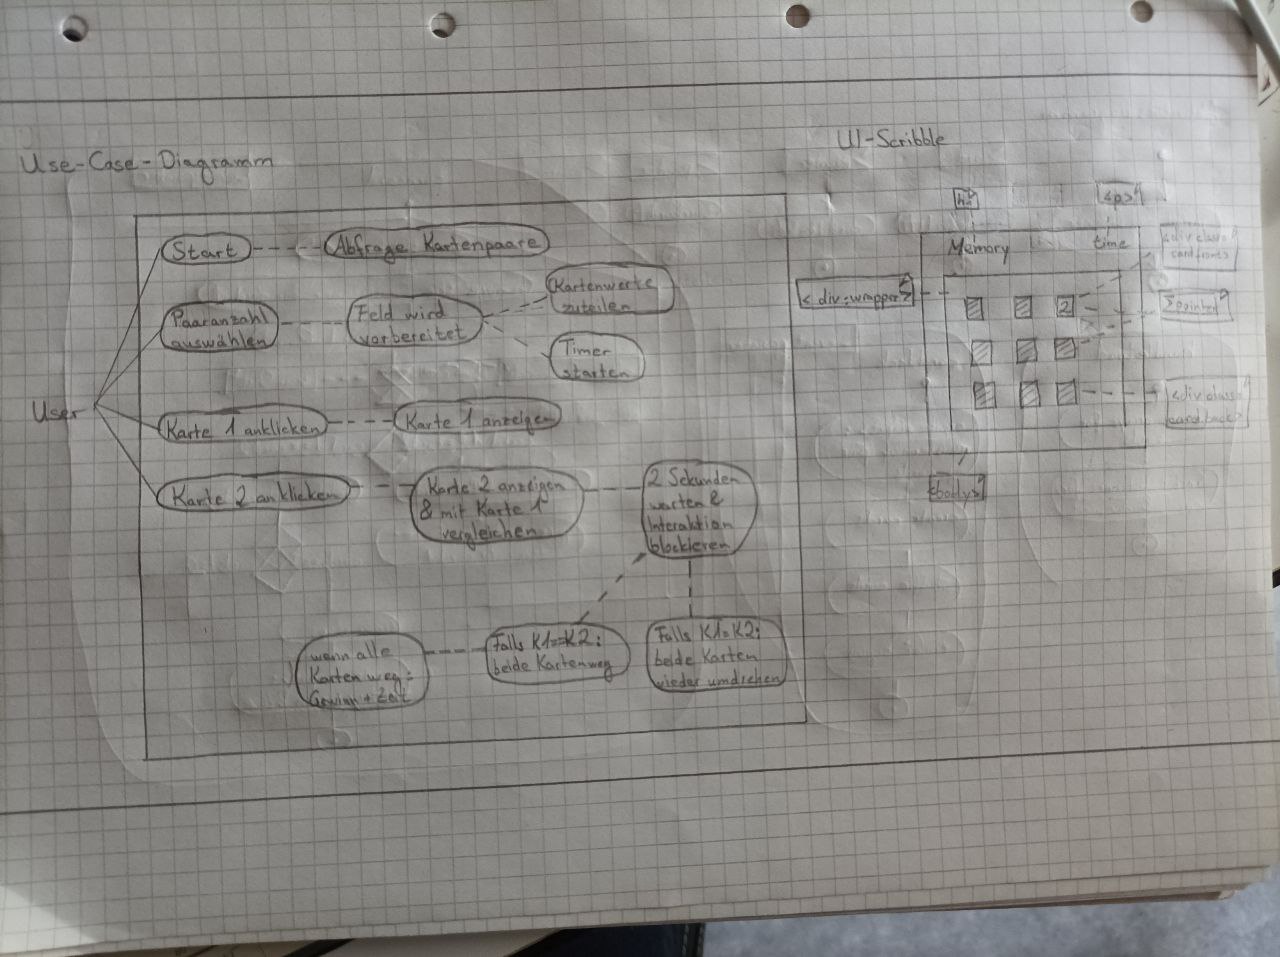 UI-Scribble
Use-Case-Diagramm
Start
Abfrage Kartenpaare
Paaranzahl
auswählen
Feld wird
vorbereitet
Kartenwerte
zuteilen
Timer
starten
User
Karte 1 anklicken
Karte 1 anzeigen
Karte 2 anklicken
Karte 2 anzeigen
& mit Karte 1
vergleichen
2 Sekunden
warten &
Interaktion
blockieren
wenn alle
Karten weg:
Gewinn + Zeit
Falls K1==K2:
beide Karten weg
Falls K1=K2:
beide Karten
wieder umdrehen
<p>
Memory
time
<div:wrapper>
2
<div class=
card front>
<div class=
card back>